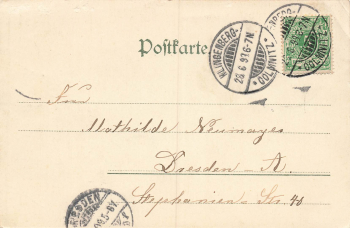 Postkarte.
KLINGENBERG-
28.6.99.6-7N.
* COLMNITZ *
Frau
Mathilde Neumayer
Dresden – A.
Stephanien – Str. 40
DRESDEN